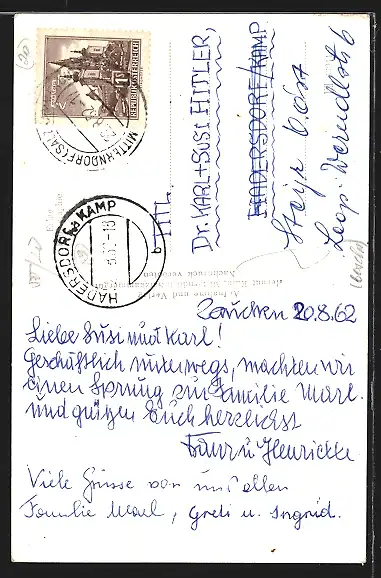 REPUBLIK ÖSTERREICH
MITTERNDORF (SALZ
HADERSDORF a. KAMP
TIT.
DR. KARL + SUSI HITLER,
HADERSDORF/KAMP
Steyr O.Öst
Leop. Werndlstr 6
Aufnahme und Verlag
Nachdruck verboten
20.8.62
Liebe Susi und Karl!
Geschäftlich unterwegs, machten wir
einen Sprung zur Familie Marl
und grüßen Euch herzlichst
Franz u Henriette
Viele Grüsse von uns allen
Familie Marl, Greti u. Ingrid.